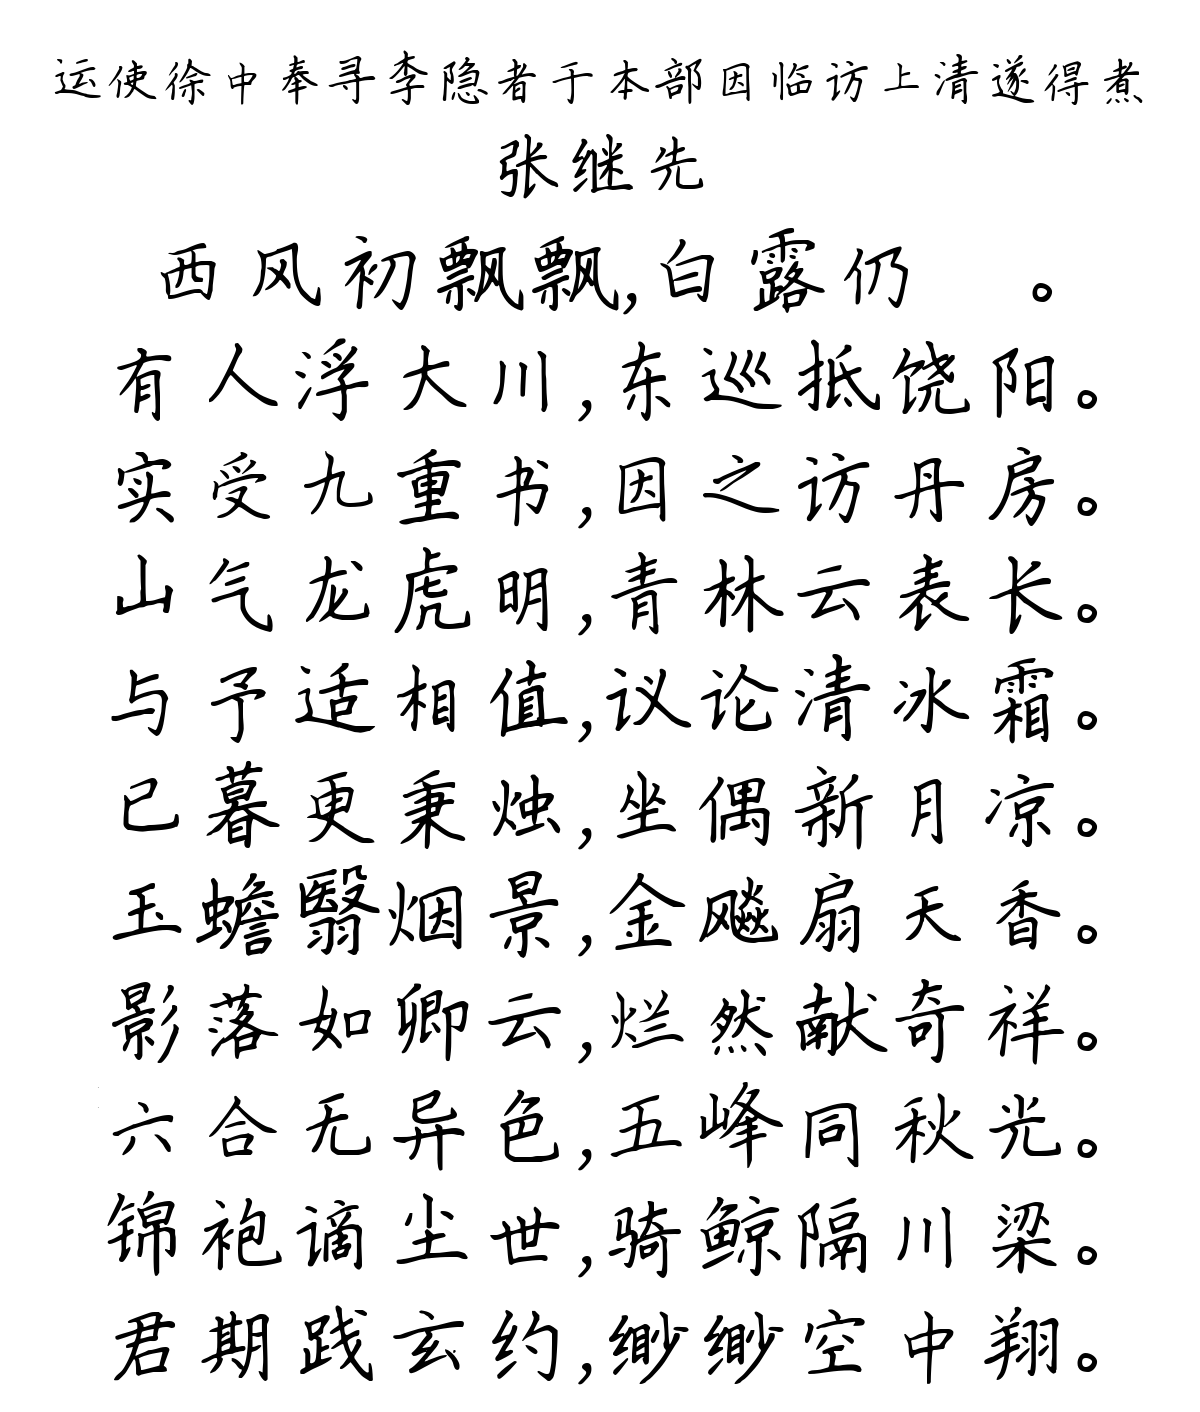 运使徐中奉寻李隐者于本部因临访上清遂得煮
张继先
西风初飘飘,白露仍 。
有人浮大川,东巡抵饶阳。
实受九重书,因之访丹房。
山气龙虎明,青林云表长。
与予适相值,议论清冰霜。
已暮更秉烛,坐偶新月凉。
玉蟾翳烟景,金飚扇天香。
影落如卿云,烂然献奇祥。
六合无异色,五峰同秋光。
锦袍谪尘世,骑鲸隔川梁。
君期践玄约,缈缈空中翔。